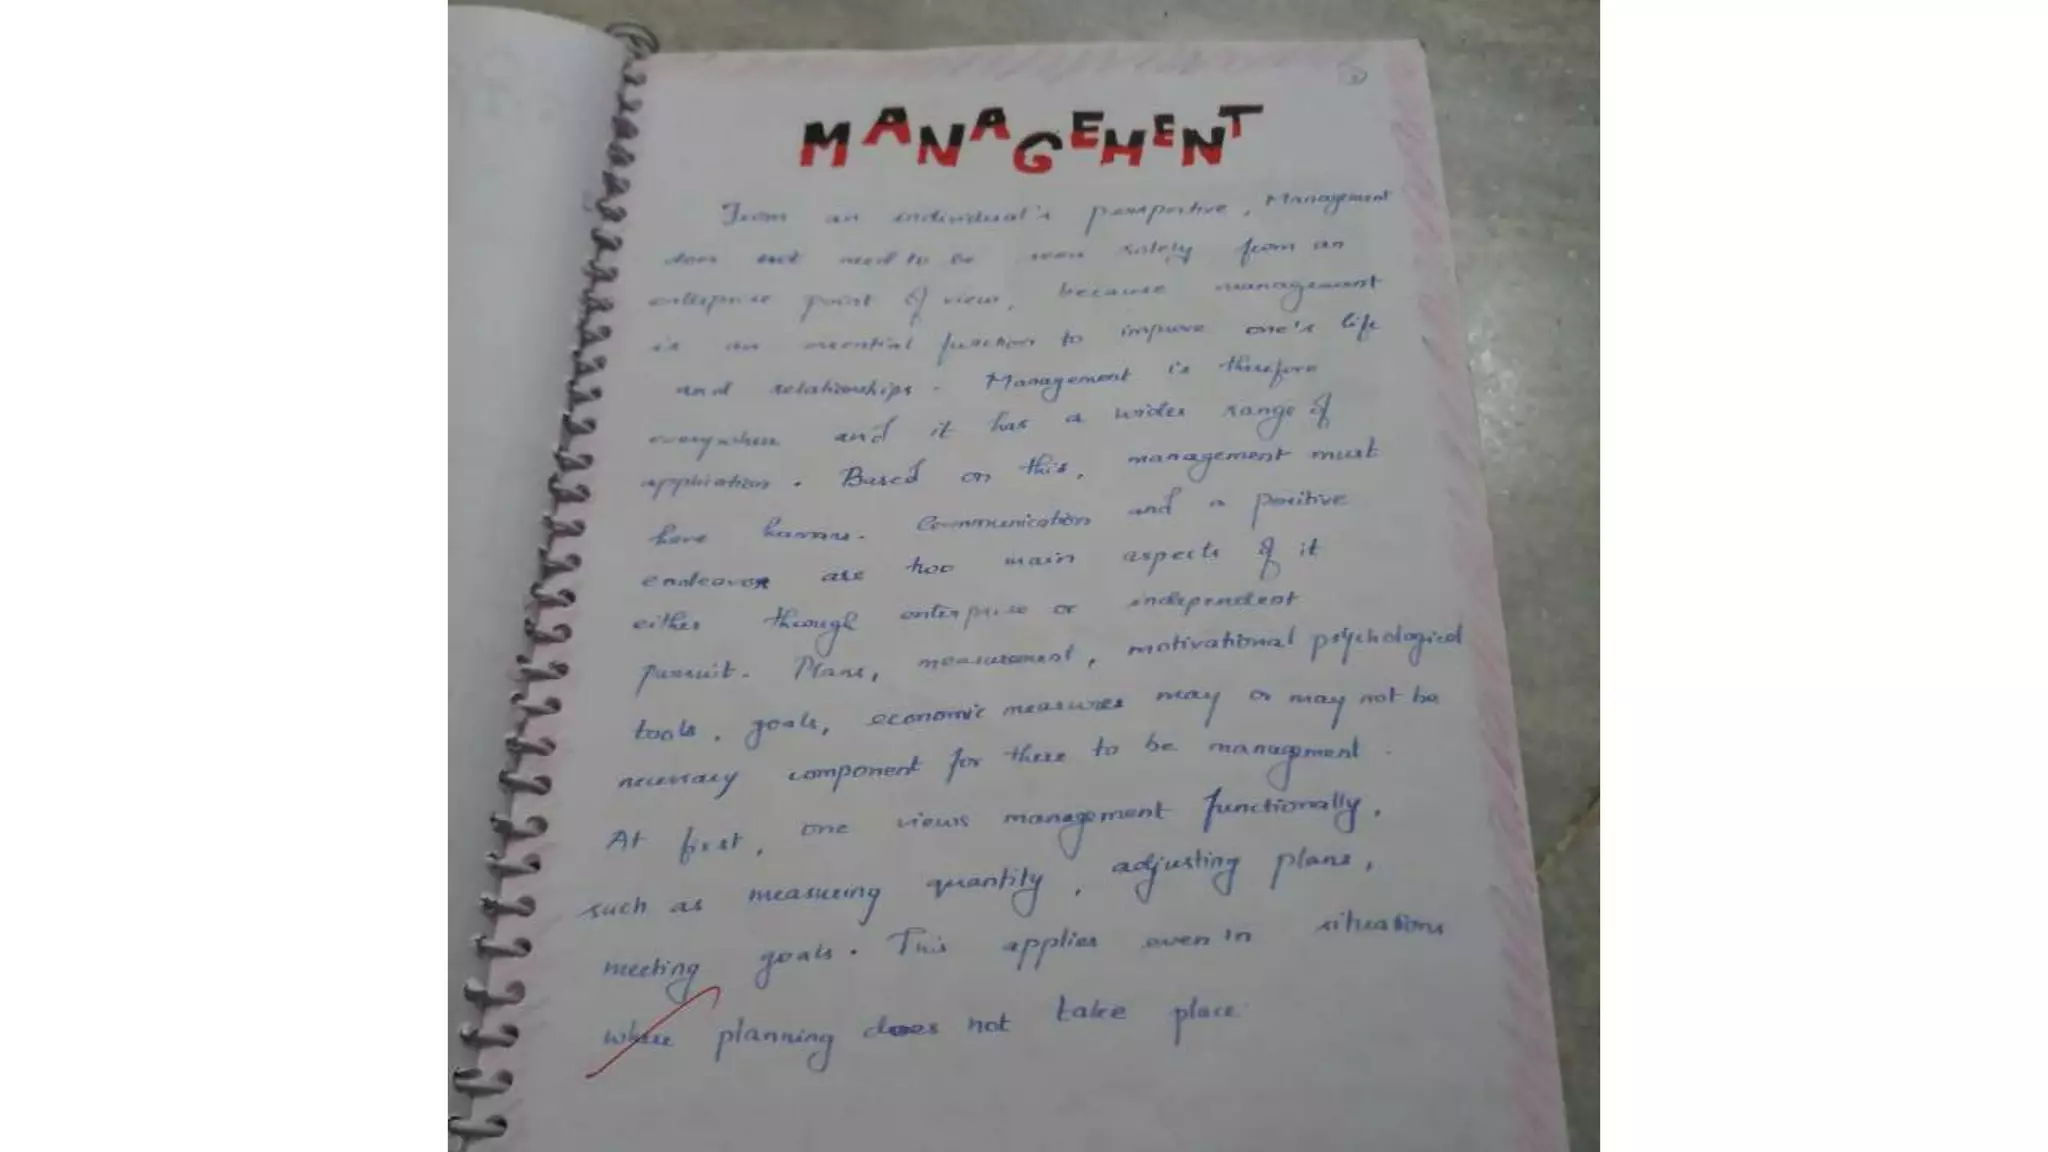 MANAGEMENT
From an individual's perspective, Management
does not need to be seen solely from an
enterprise point of view, because management
is an essential function to improve one's life
and relationships. Management is therefore
everywhere and it has a wider range of
application. Based on this, management must
have humans. Communication and a positive
endeavor are two main aspects of it
either through enterprise or independent
pursuit. Plans, measurement, motivational psychological
tools, goals, economic measures may or may not be
necessary component for there to be management.
At first, one views management functionally,
such as measuring quantity, adjusting plans,
meeting goals. This applies even in situations
where planning does not take place